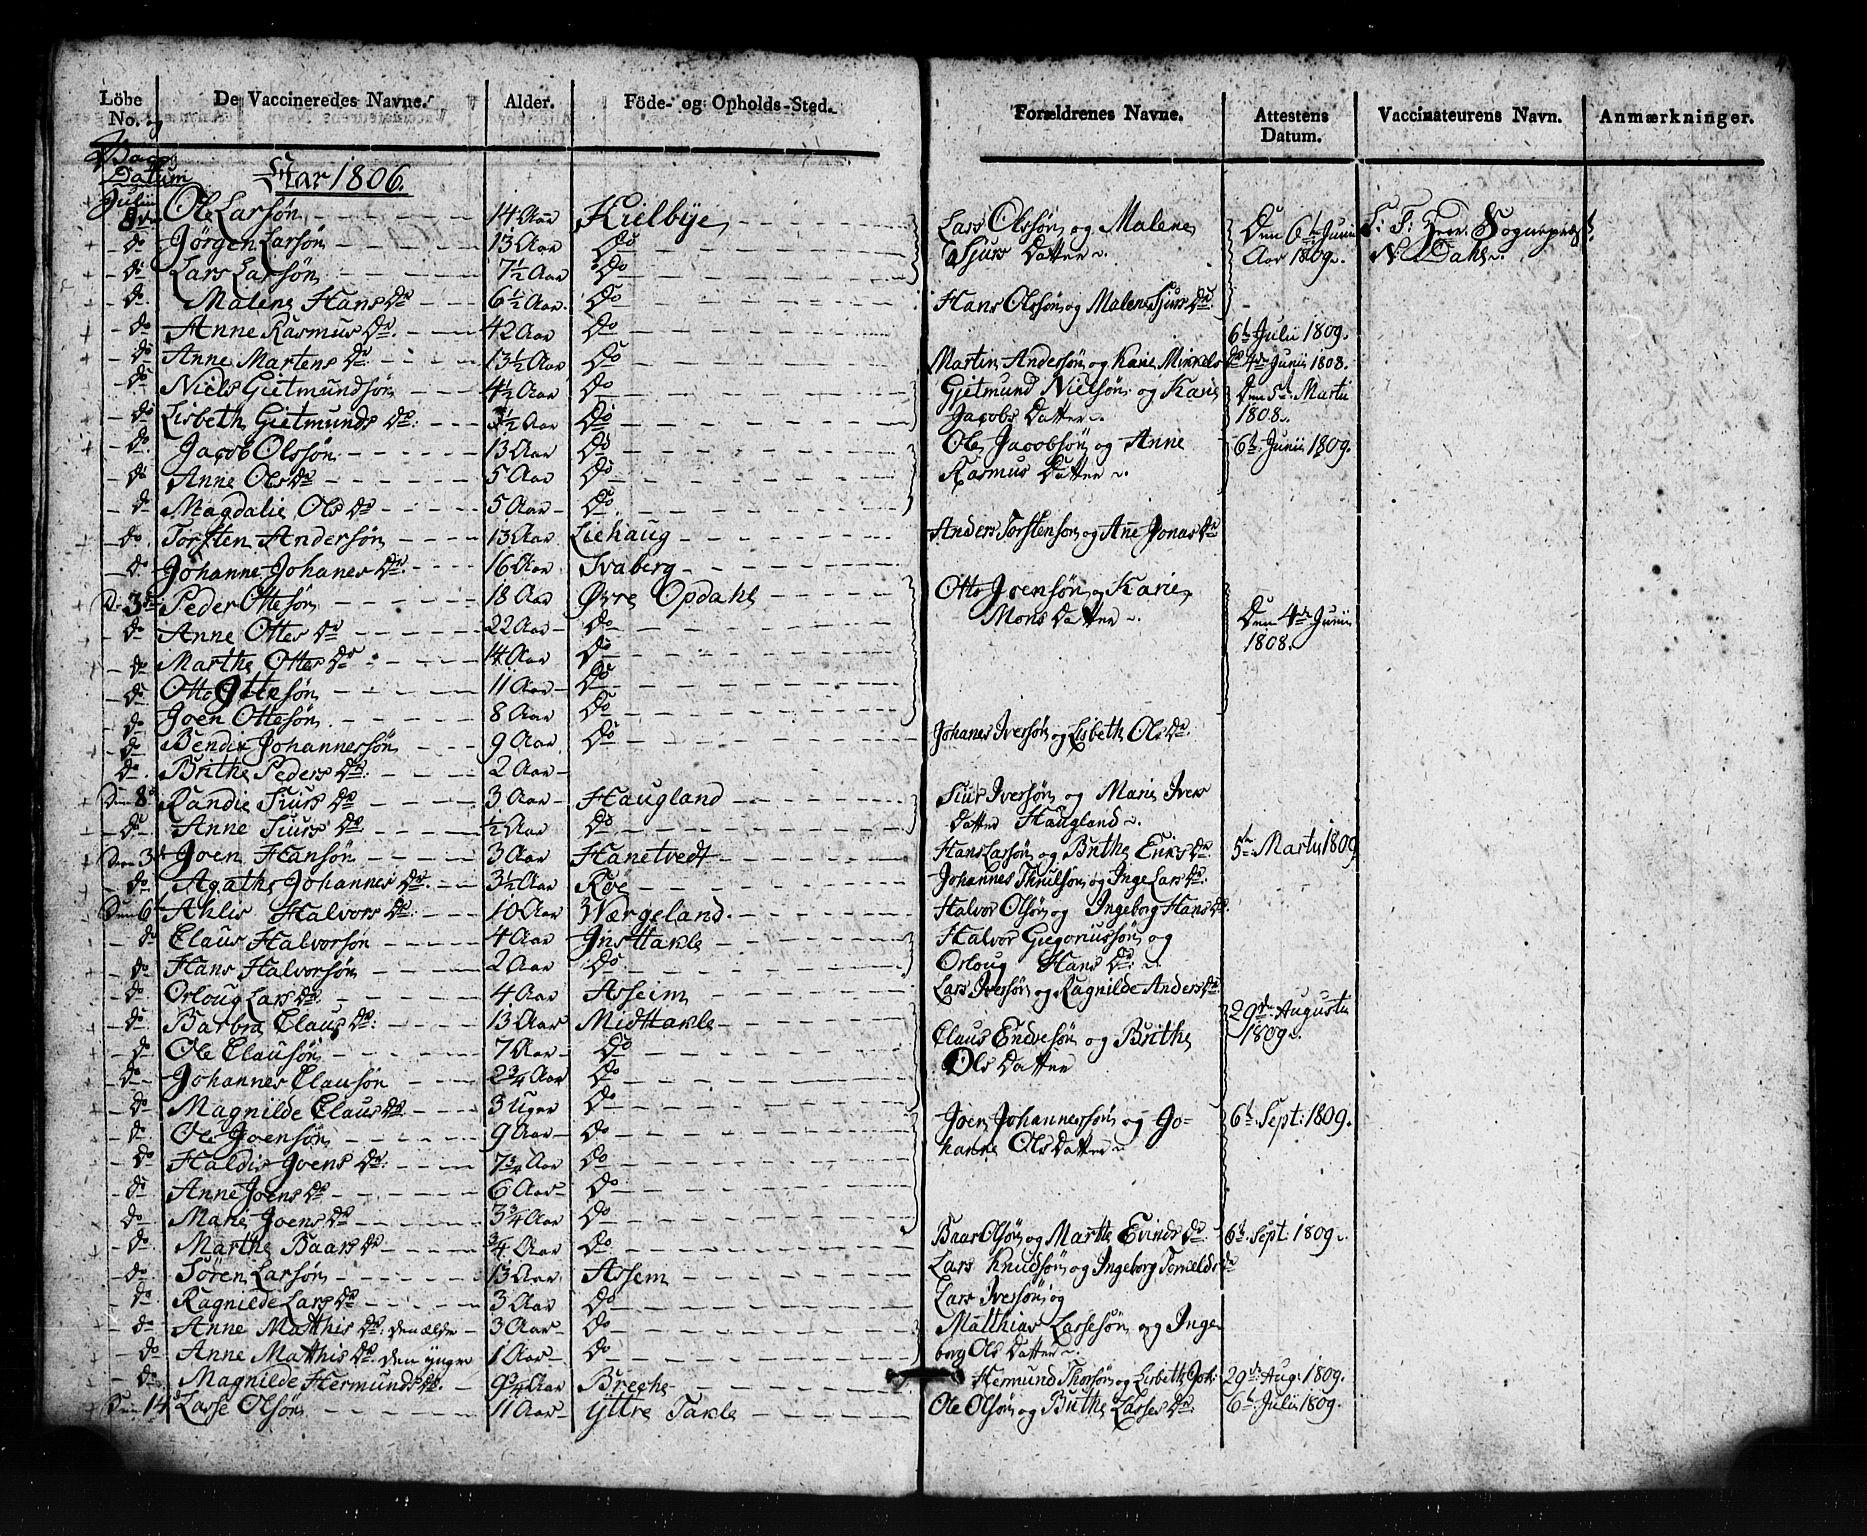 Löbe No. | De Vaccineredes Navne. | Alder. | Föde- og Opholds-Sted. | Forældrenes Navne. | Attestens Datum. | Vaccinateurens Navn. | Anmærkninger.
og Datum | Aar 1806.
Julii 8de | Ole Larsøn | 14 Aar | Kielbye | Lars Olssøn og Malene | Den 6t Junii | S: T: Herr Sognepræst
do | Jørgen Larsøn | 13 Aar | Do | Sjurs Datter | Aar 1809. | N. Dahl
do | Lars Larsøn | 7½ Aar | Do
do | Malene Hans Dr | 6½ Aar | Do | Hans Olssøn og Malene Sjurs Dr
do | Anne Rasmus Dr. | 42 Aar | Do | | 6t Julii 1809.
do | Anne Martens Dr | 13½ Aar | Do | Martin Andersøn og Karie Mikkels Dr | 4de Junii 1808.
do | Niels Gietmundsøn | 4½ Aar | Do | Gjetmund Nielsøn og Karie | Den 5te Martii
do | Lisbeth Gietmunds Dr: | ½ Aar | Do | Jacobs Datter | 1808.
do | Jacob Olssøn | 13 Aar | Do | Ole Jacobsøn og Anne | 6t Junii 1809.
do | Anne Ols Dr | 5 Aar | Do | Rasmus Datter
do | Magdalie Ols Dr | 5 Aar | Do
do | Torsten Andersøn | 13 Aar | Liehaug | Anders Torstenson og Ane Jonas Dr
do | Johanne Johanes Dr | 16 Aar | Svaberg
Den 3de | Peder Ottesøn | 18 Aar | Øvre Opdahl | Otto Joensøn og Karie
do | Anne Ottes Dr | 22 Aar | Do | Mons Datter | Den 4de Junii
do | Marthe Ottes Dr | 14 Aar | Do | | 1808.
do | Otto Ottesøn | 11 Aar | Do
do | Joen Ottesøn | 8 Aar | Do
do | Bendix Johannessøn | 9 Aar | Do | Johanes Iversøn og Lisbeth Ols Dr
do | Brithe Peders Dr: | 2 Aar
Den 8de | Randie Siurs Dr | 3 Aar | Haugland | Siur Iversøn og Marie Ivers
do | Anne Siurs Dr | ½ Aar | Do | Datter Haugland
Den 3de | Joen Hansøn | 3 Aar | Hanetvedt | Hans Larsøn og Brithe Erics Dr | 5te Martii 1809
do | Agathe Johannes Dr. | 3½ Aar | Røe | Johannes Thruilsøn og Inge Lars Dr
Den 6t | Ahlis Halvors Dr: | 10 Aar | Værgeland. | Halvor Olsøn og Ingeborg Hans Dr
do | Claus Halvorsøn | 4 Aar | InstTakle | Halvor Gregoriussøn og
do | Hans Halvorsøn | 2 Aar | Do | Orloug Hans Dr:
do | Orloug Lars Dr. | 4 Aar | Asseim | Lars Iversøn og Ragnilde Anders Dr
do | Barbra Claus Dr: | 13 Aar | MidtTakle | | 29de Augusti
do | Ole Clausøn | 7 Aar | Do | Claus Endresøn og Brithe | 1809.
do | Johannes Clausøn | 2¾ Aar | Do | Ols Datter
do | Magnilde Claus Dr | 3 Uger | Do
do | Ole Joensøn | 9 Aar | Do | Joen Johannessøn og Jo- | 6t Sept: 1809.
do | Haldis Joens Dr: | 7¾ Aar | Do | hanne Ols Datter
do | Anne Joens Dr | 6 Aar | Do
do | Marie Joens Dr | 3¾ Aar | Do
do | Marthe Baars Dr | ¾ Aar | Do | Baar Olsøn og Marthe Evinds Dr: | 6t Sept: 1809.
do | Søren Larsøn | 13 Aar | Assem | Lars Knudsøn og Ingeborg
do | Ragnilde Lars Dr | 3 Aar | Do | Lars Iversøn og
do | Anne Matthis Dr: den ældre | 3 Aar | Do | Matthias Larsesøn og Inge
do | Anne Matthis Dr: den yngre | 1 Aar | Do | borg Ols Datter
do | Magnilde Hermunds Dr. | 9¾ Aar | Breche | Hermund Thorsøn og Lisbeth Joh: | 29de Aug: 1809.
Den 14de | Lasse Olsøn | 11 Aar | Yttre Takle | Ole Olsøn og Brithe Lasses Dr | 6t Julii 1809.